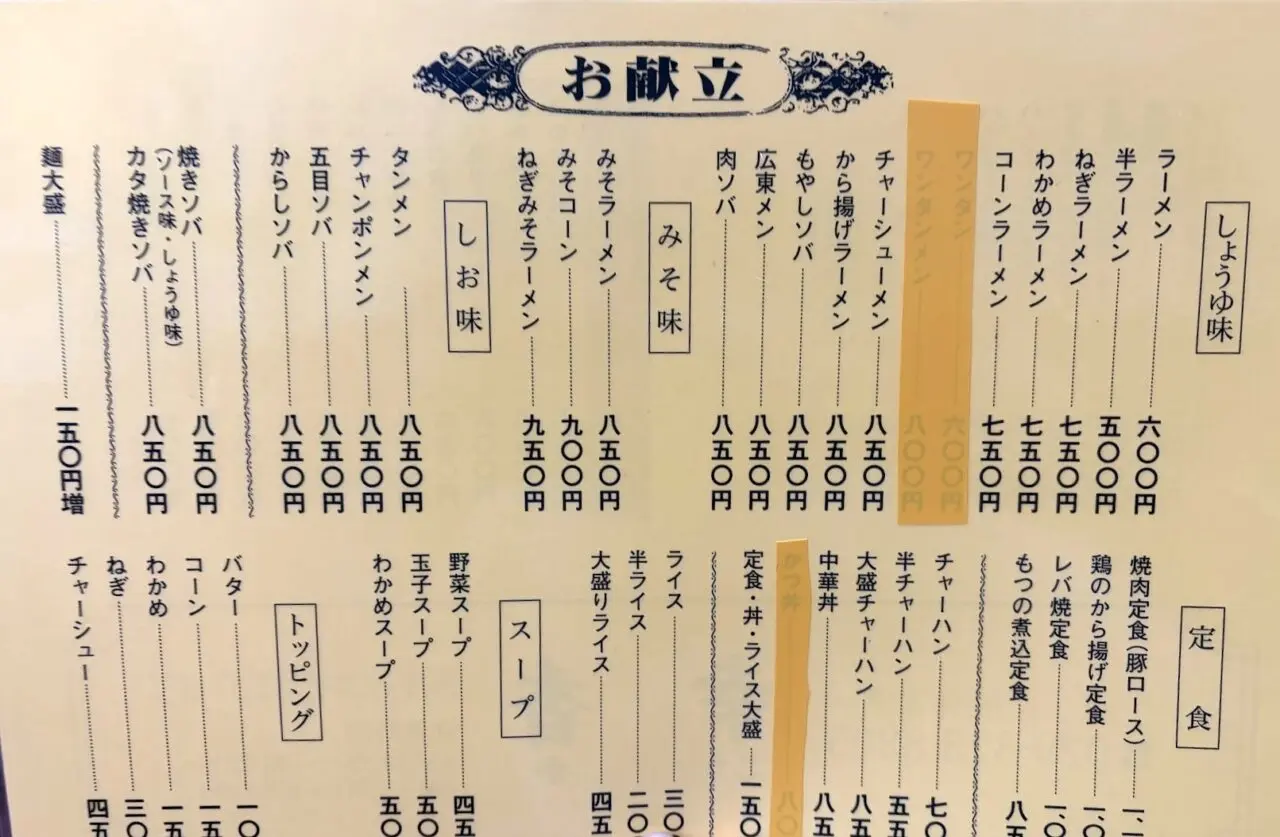 お献立
しょうゆ味
ラーメン 六〇〇円
半ラーメン 五〇〇円
ねぎラーメン 七五〇円
わかめラーメン 七五〇円
コーンラーメン 七五〇円
ワンタン 六〇〇円
ワンタンメン 八〇〇円
チャーシューメン 八五〇円
から揚げラーメン 八五〇円
もやしソバ 八五〇円
広東メン 八五〇円
肉ソバ 八五〇円
みそ味
みそラーメン 八五〇円
みそコーン 九〇〇円
ねぎみそラーメン 九五〇円
しお味
タンメン 八五〇円
チャンポンメン 八五〇円
五目ソバ 八五〇円
からしソバ 八五〇円
焼きソバ 八五〇円
(ソース味・しょうゆ味)
カタ焼きソバ 八五〇円
麺大盛 一五〇円増
定食
焼肉定食(豚ロース) 一、
鶏のから揚げ定食 一、〇
レバ焼定食 一、〇
もつの煮込定食 八五
チャーハン 七〇
半チャーハン 五五
大盛チャーハン 八五
中華丼 八五
かつ丼 八〇
定食・丼・ライス大盛 一五〇
ライス 三〇
半ライス 二〇
大盛りライス 四五
スープ
野菜スープ 四五
玉子スープ 五〇
わかめスープ 五〇
トッピング
バター 一〇
コーン 一五
わかめ 一五
ねぎ 三〇
チャーシュー 四五